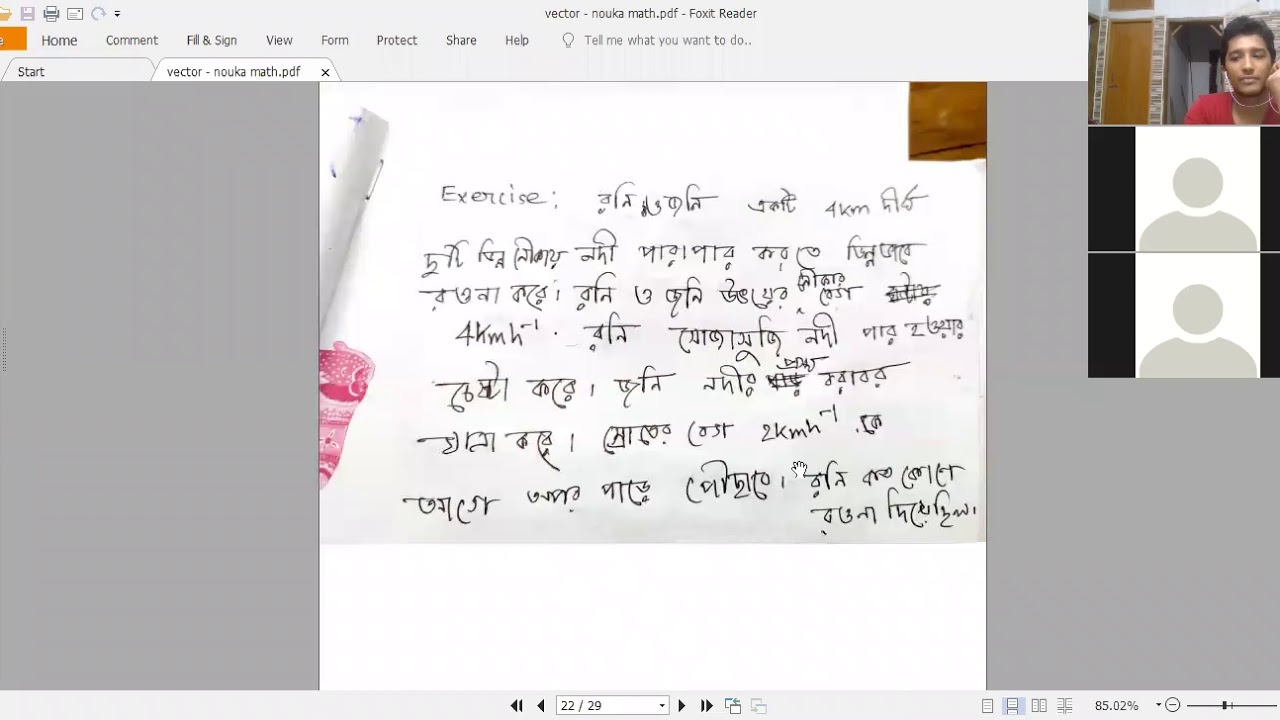 vector - nouka math.pdf - Foxit Reader
Home Comment Fill & Sign View Form Protect Share Help Tell me what you want to do..
Start vector - nouka math.pdf
Exercise: রনি ও জনি একটি 4km দীর্ঘ
দুটি ভিন্ন নৌকায় নদী পারাপার করতে ভিন্নভাবে
রওনা করে। রনি ও জনি উভয়ের নৌকার বেগ
4kmh⁻¹. রনি সোজাসুজি নদী পার হওয়ার
চেষ্টা করে। জনি নদীর প্রস্থ বরাবর
যাত্রা করে। স্রোতের বেগ 2kmh⁻¹. কে
আগে অপর পাড়ে পৌছাবে। রনি কত কোণে
রওনা দিয়েছিল।
22 / 29
85.02%